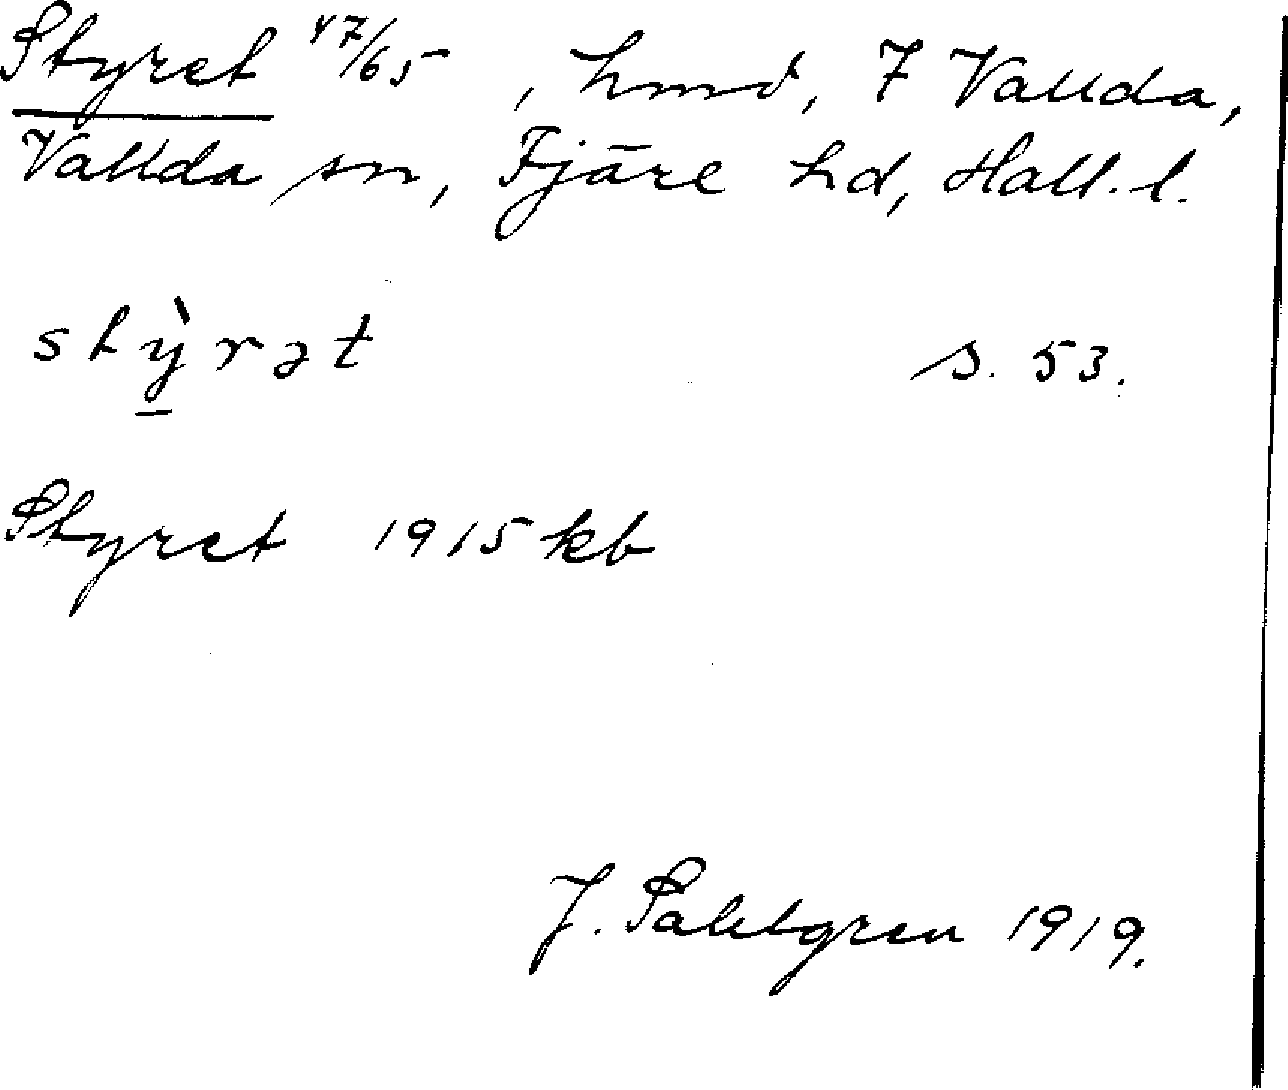 Styret 47/65, hmd, 7 Vallda,
Vallda sn, Fjäre hd, Hall. l.
stỳrət s. 53.
Styret 1915 kb
J. Sahlgren 1919.